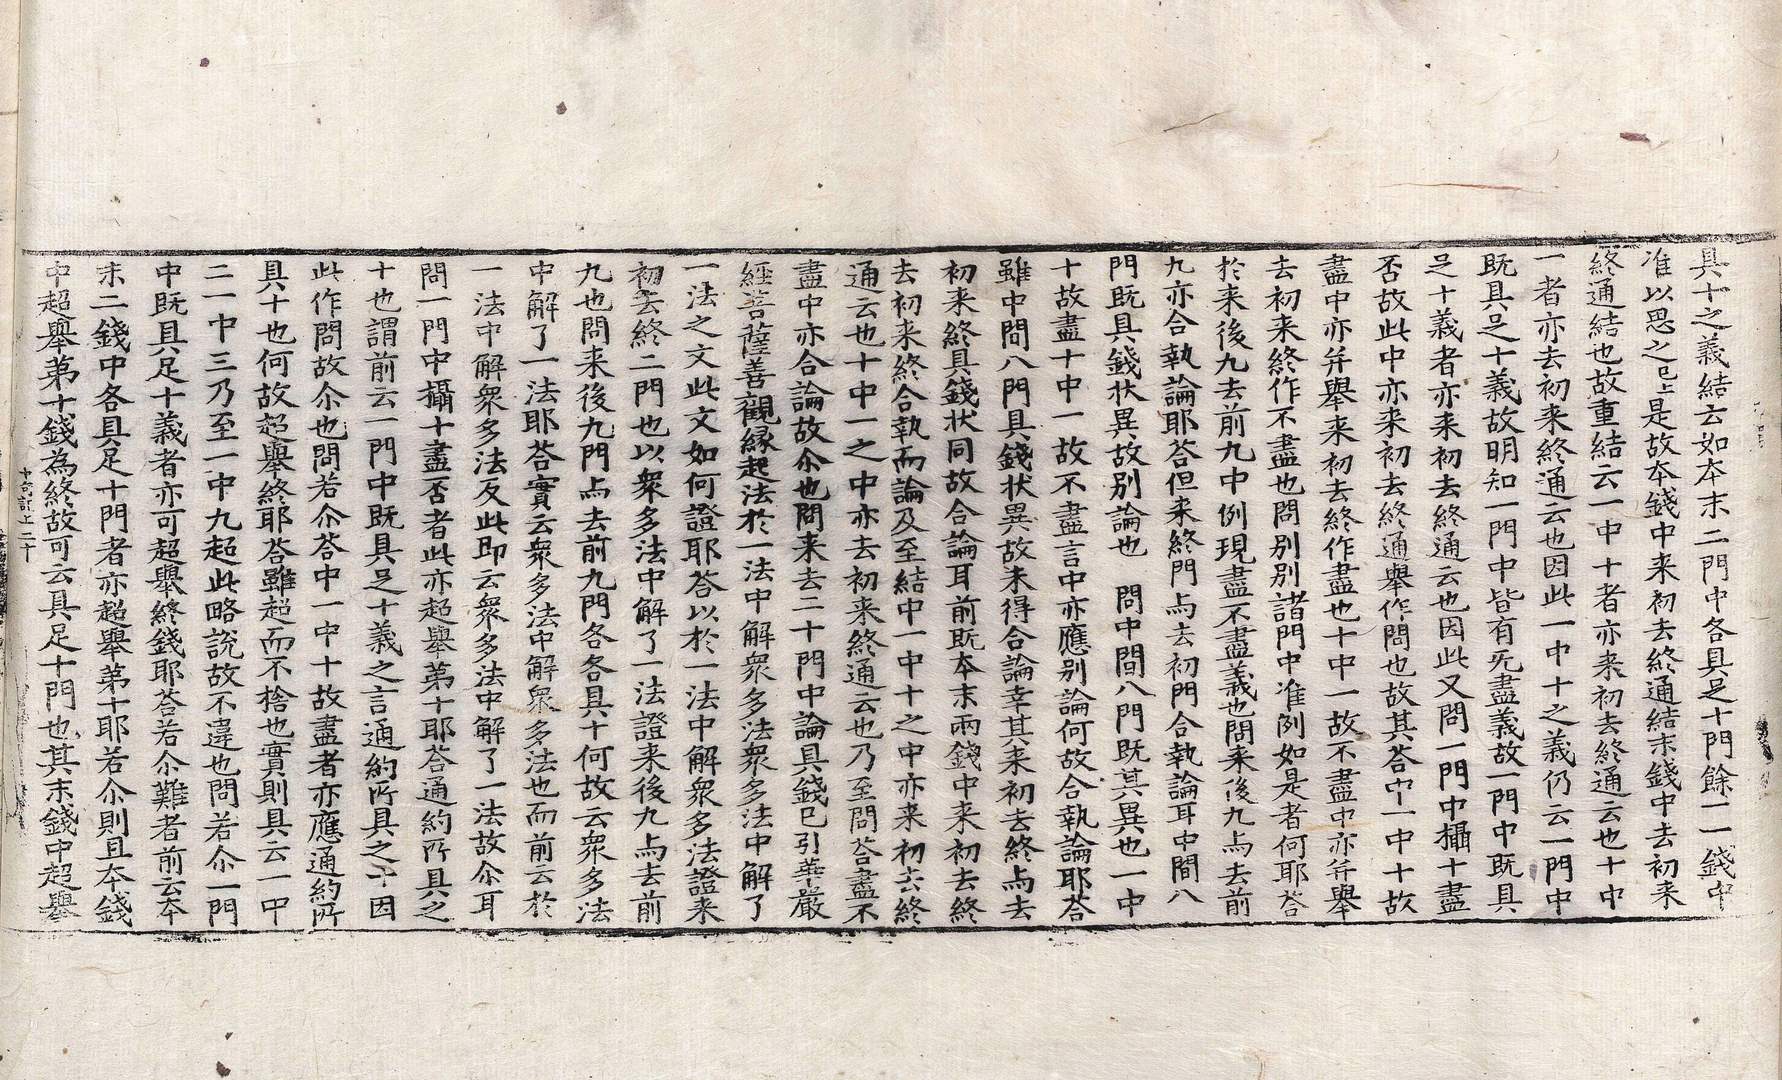 具十之義結云如本末二門中各具足十門餘一一錢中
准以思之已上是故本錢中来初去終通結末錢中去初来
終通結也故重結云一中十者亦来初去終通云也十中
一者亦去初来終通云也因此一中十之義仍云一門中
既具足十義故明知一門中皆有无盡義故一門中既具
足十義者亦来初去終通云也因此又問一門中攝十盡
否故此中亦来初去終通舉作問也故其荅中一中十故
盡中亦弁舉来初去終作盡也十中一故不盡中亦弁舉
去初来終作不盡也問別別諸門中准例如是者何耶荅
於来後九去前九中例現盡不盡義也問来後九与去前
九亦合執論耶荅但来終門与去初門合執論耳中間八
門既具錢状異故別論也　問中間八門既其異也一中
十故盡十中一故不盡言中亦應別論何故合執論耶荅
雖中間八門具錢状異故未得合論幸其来初去終与去
初来終具錢状同故合論耳前既本末兩錢中来初去終
去初来終合執而論及至結中一中十之中亦来初去終
通云也十中一之中亦去初来終通云也乃至問荅盡不
盡中亦合論故尒也問来去二十門中論具錢已引華嚴
經菩薩善觀緣起法於一法中解衆多法衆多法中解了
一法之文此文如何證耶荅以於一法中解衆多法證来
初去終二門也以衆多法中解了一法證来後九与去前
九也問来後九門与去前九門各各具十何故云衆多法
中解了一法耶荅實云衆多法中解衆多法也而前云於
一法中解衆多法反此即云衆多法中解了一法故尒耳
問一門中攝十盡否者此亦超舉第十耶荅通約所具之
十也謂前云一門中既具足十義之言通約所具之十因
此作問故尒也問若尒荅中一中十故盡者亦應通約所
具十也何故超舉終耶荅雖超而不捨也實則具云一中
二一中三乃至一中九起此略說故不違也問若尒一門
中既具足十義者亦可超舉終錢耶荅若尒難者前云本
末二錢中各具足十門者亦超舉第十耶若尒則且本錢
中超舉第十錢為終故可云具足十門也其末錢中超舉